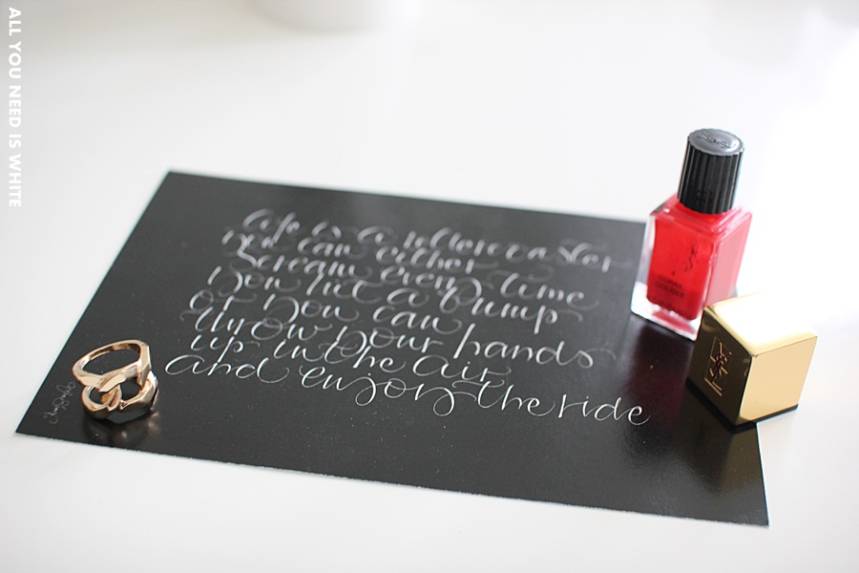 ALL YOU NEED IS WHITE
Life is a rollercoaster
You can either
scream every time
You hit a bump
or you can
throw your hands
up in the air
and enjoy the ride
YSL